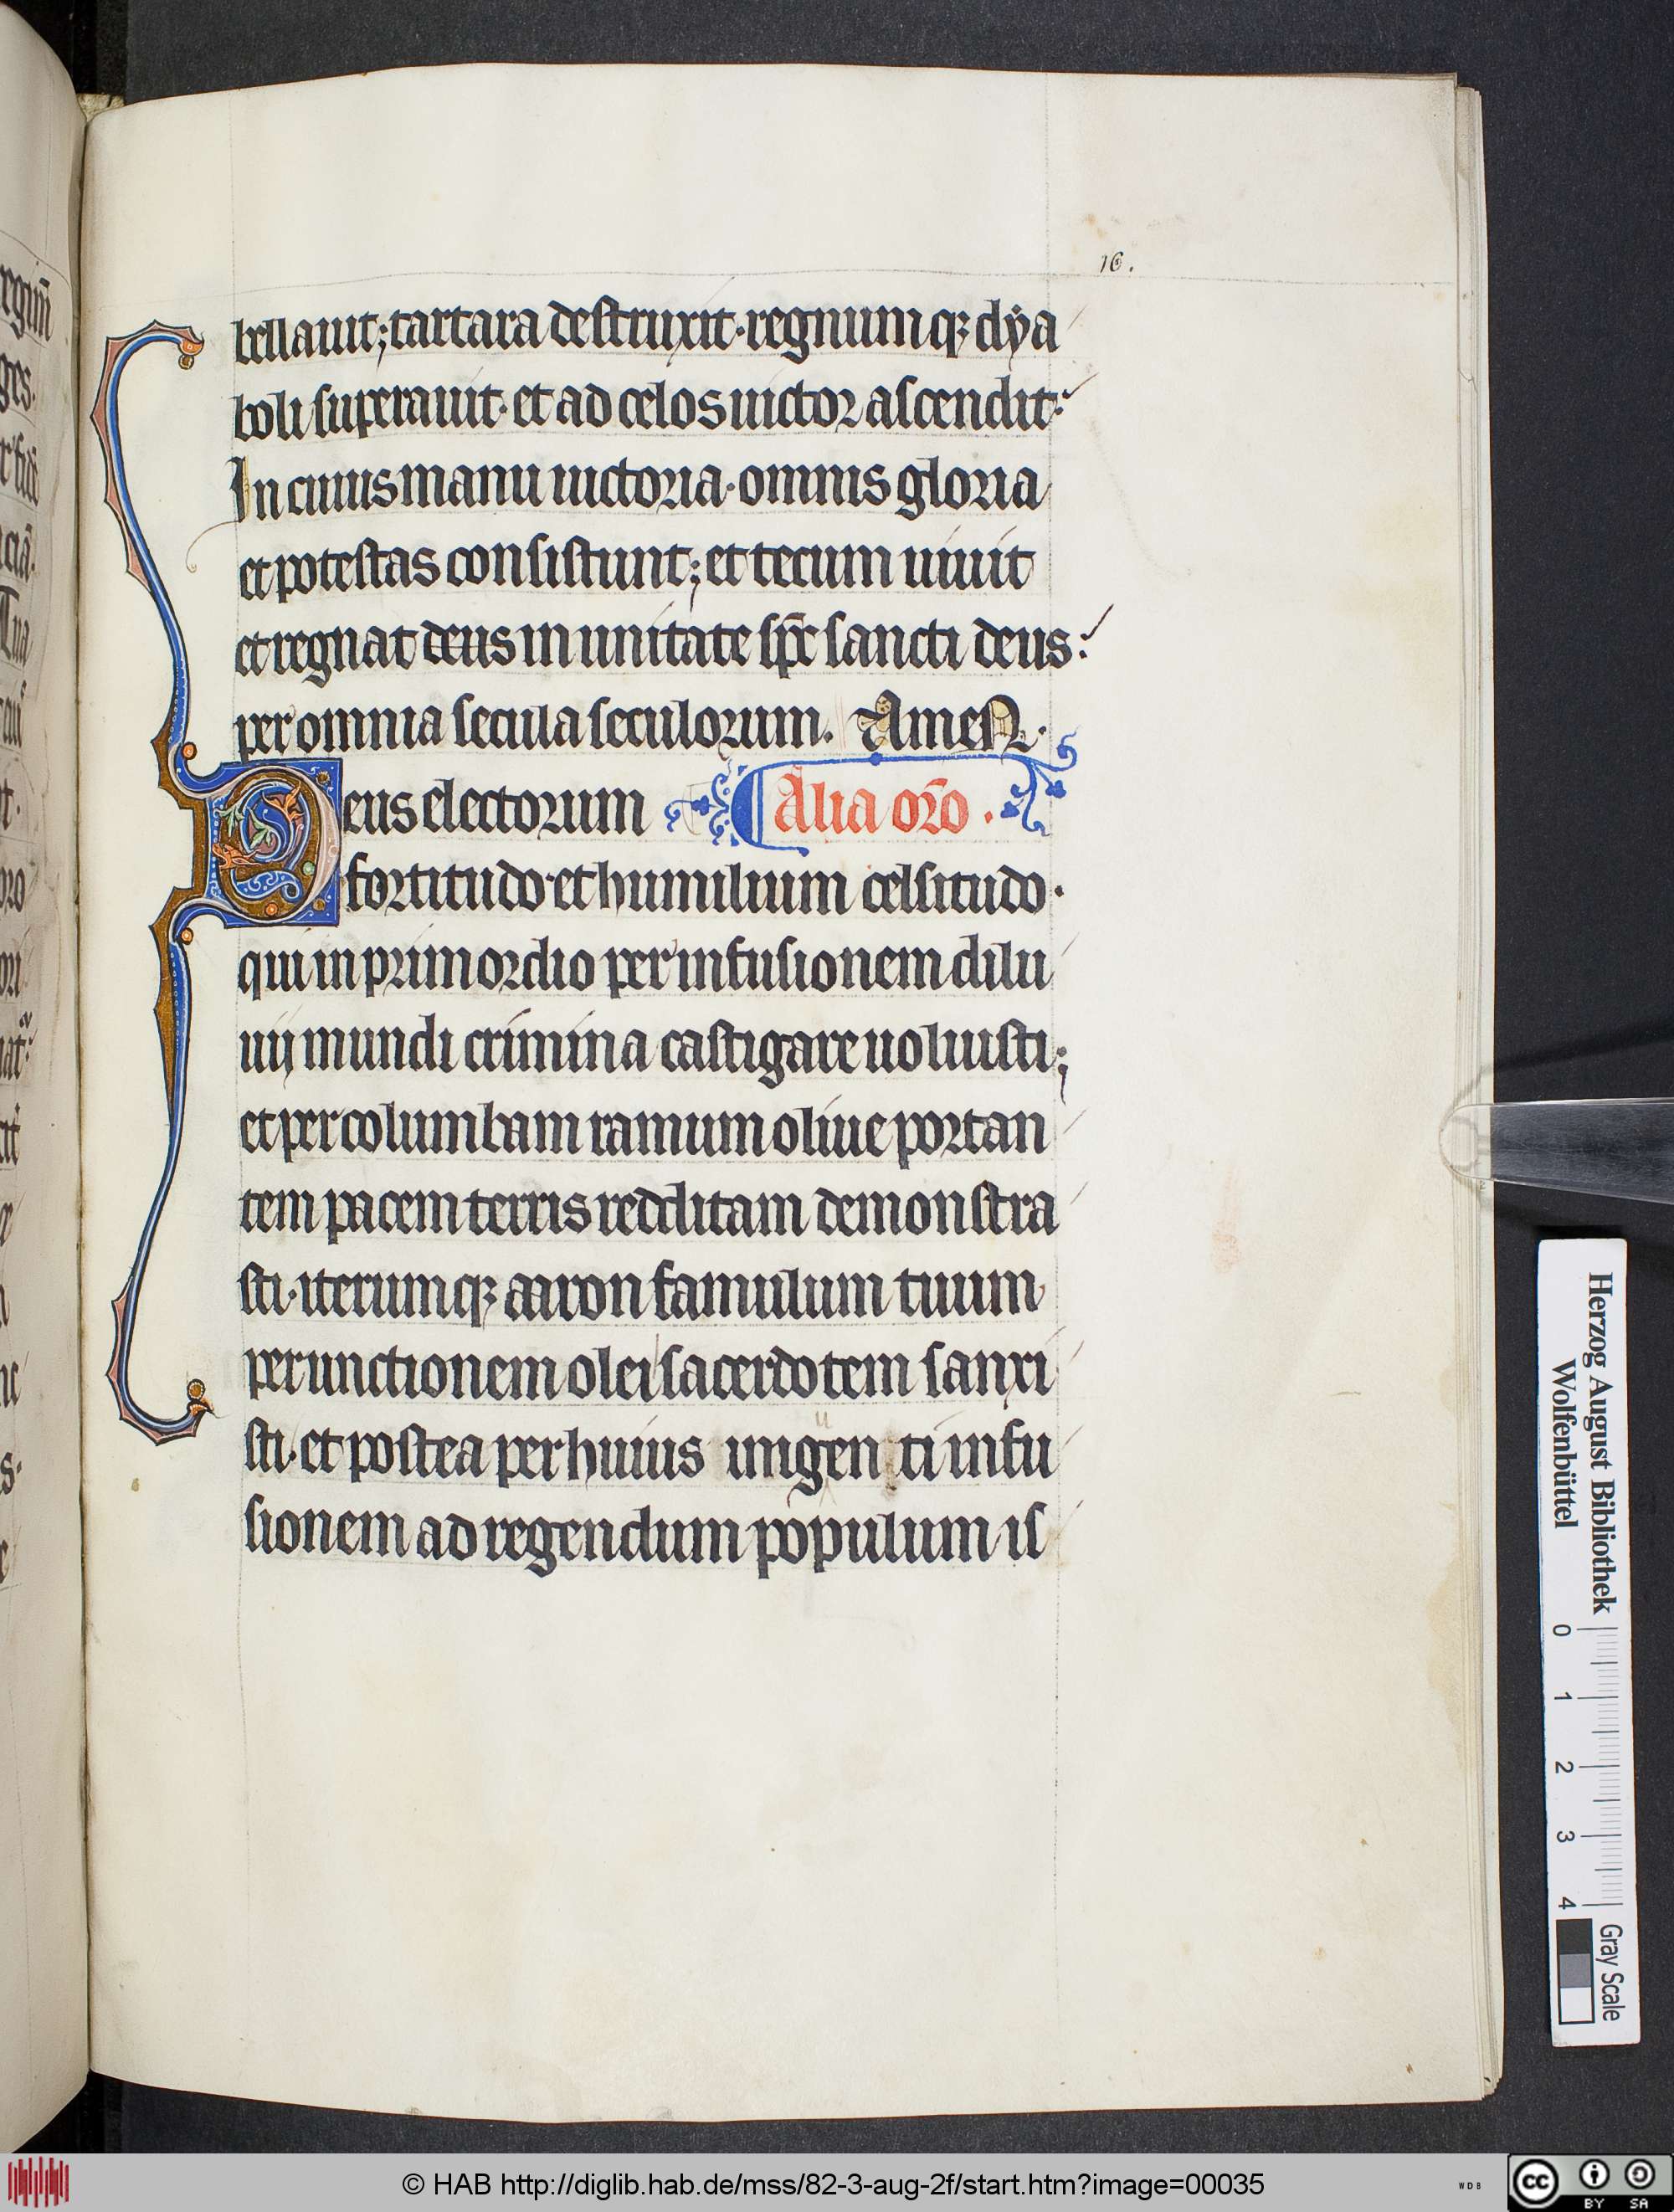 16.
bellauit; tartara destruxit· regnumqꝫ dẏa
boli superauit· et ad celos uictor ascendit:
In cuius manu uictoria· omnis gloria
et potestas consistunt; et tecum uiuit
et regnat deus in unitate sp̄c sancti deus:
per omnia secula seculorum. AmeN.
Deus electorum Alia or̄o .
fortitudo· et humilium celsitudo·
qui in primordio per infusionem dilu
uij mundi crimina castigare uoluisti;
et per columbam ramum oliue portan
tem pacem terris redditam demonstra
sti· iterumqꝫ aaron famulum tuum
per unctionem olei sacerdotem sanxi
sti· et postea per huius ungen ti infu
sionem ad regendum populum is
Herzog August Bibliothek
Wolfenbüttel
0 1 2 3 4
Gray Scale
© HAB http://diglib.hab.de/mss/82-3-aug-2f/start.htm?image=00035
WDB
cc BY SA